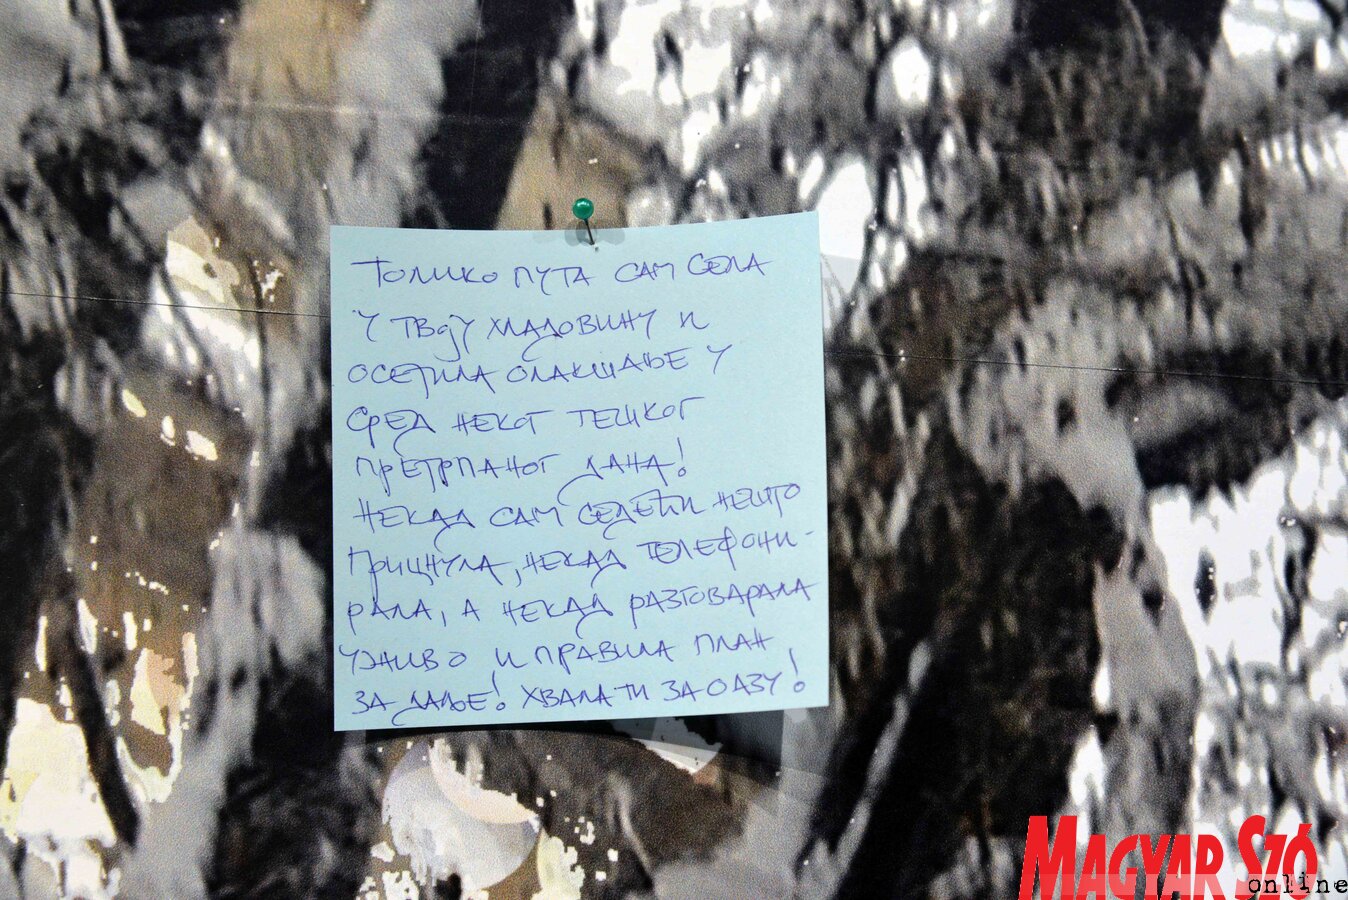 Толико пута сам села
у твоју хладовину и
осетила олакшање у
сред неког тешког
претрпаног дана!
Некад сам седећи нешто
грицнула, некад телефони-
рала, а некад разговарала
уживо и правила план
за даље! Хвала ти за оазу!
MAGYAR SZÓ
online